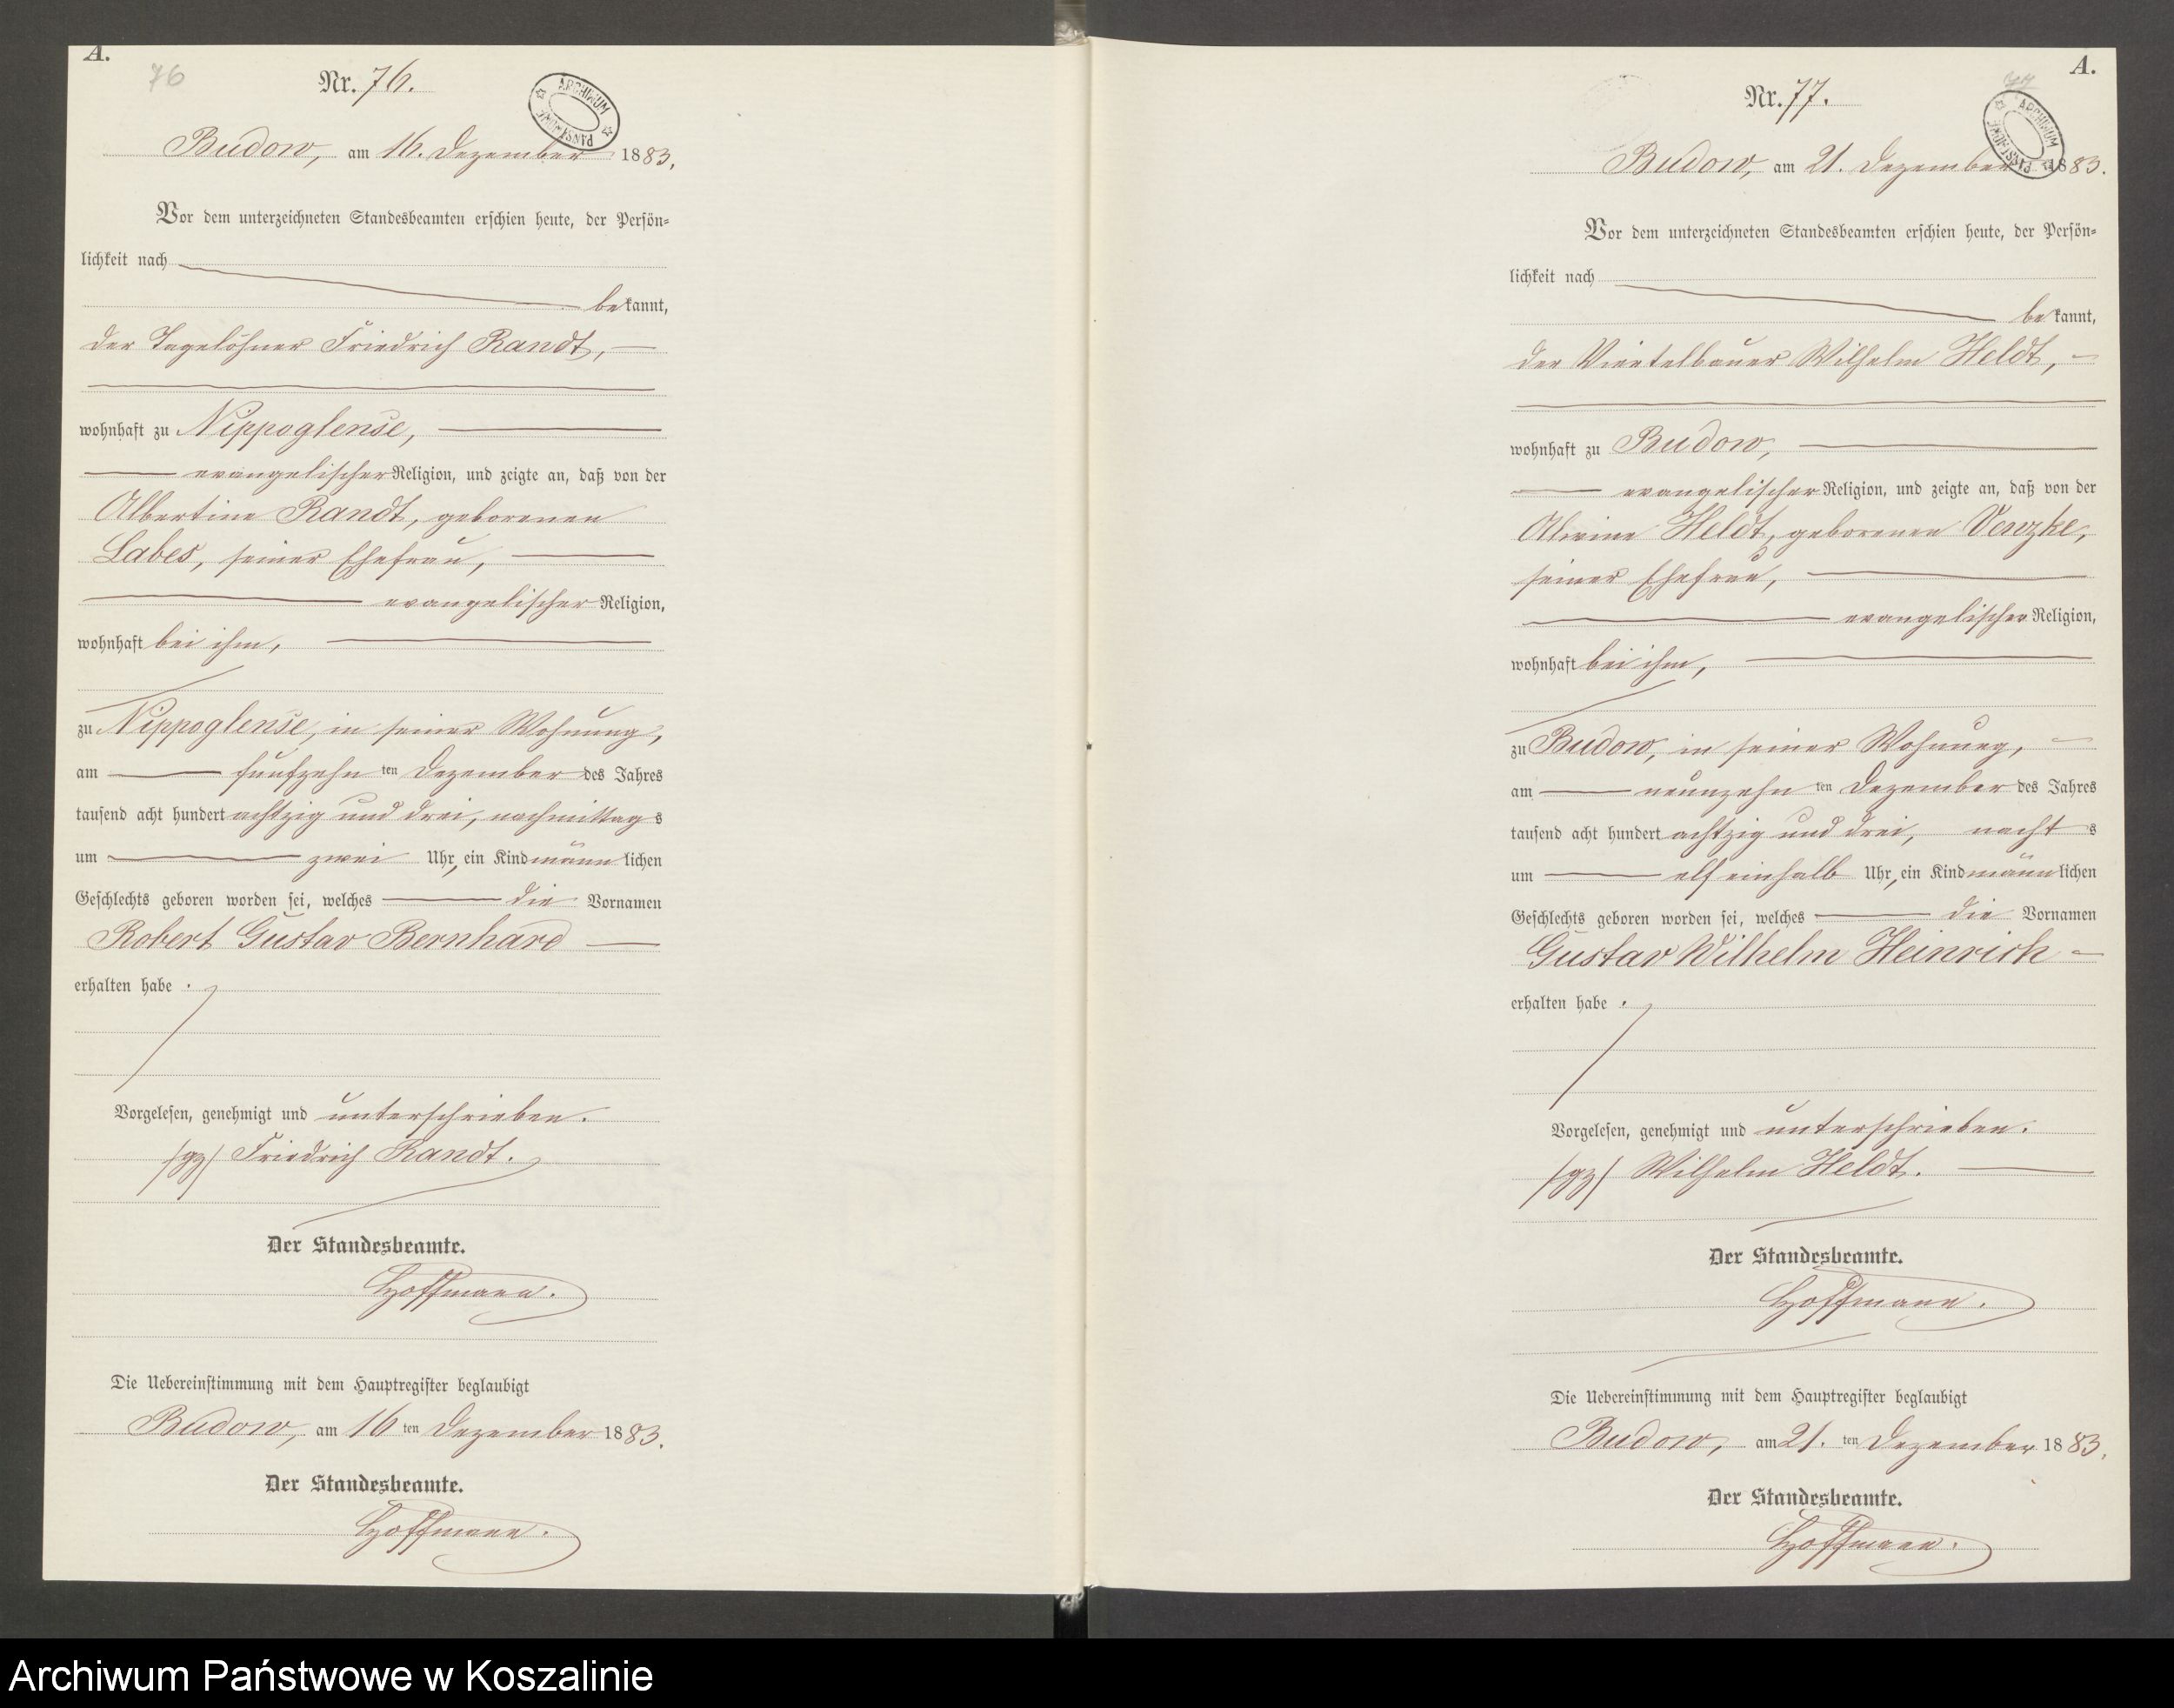 A.
76
Nr. 76.
ARCHIWUM PAŃSTWOWE
Budow, am 16. Dezember 1883.
Vor dem unterzeichneten Standesbeamten erschien heute, der Persön-
lichkeit nach
bekannt,
der Tagelöhner Friedrich Randt,
wohnhaft zu Nippoglense,
evangelischer Religion, und zeigte an, daß von der
Albertine Randt, geborenen
Labes, seiner Ehefrau,
evangelischer Religion,
wohnhaft bei ihm,
zu Nippoglense, in seiner Wohnung,
am fünfzehn ten Dezember des Jahres
tausend acht hundert achtzig und drei, nachmittags
um zwei Uhr, ein Kind männlichen
Geschlechts geboren worden sei, welches die Vornamen
Robert Gustav Bernhard
erhalten habe.
Vorgelesen, genehmigt und unterschrieben.
/gz/ Friedrich Randt.
Der Standesbeamte.
Hoffmann.
Die Uebereinstimmung mit dem Hauptregister beglaubigt
Budow, am 16 ten Dezember 1883.
Der Standesbeamte.
Hoffmann.
A.
77
Nr. 77.
ARCHIWUM PAŃSTWOWE
Budow, am 21. Dezember 1883.
Vor dem unterzeichneten Standesbeamten erschien heute, der Persön-
lichkeit nach
bekannt,
der Viertelbauer Wilhelm Heldt,
wohnhaft zu Budow,
evangelischer Religion, und zeigte an, daß von der
Alwine Heldt, geborenen Venzke,
seiner Ehefrau,
evangelischer Religion,
wohnhaft bei ihm,
zu Budow, in seiner Wohnung,
am neunzehn ten Dezember des Jahres
tausend acht hundert achtzig und drei, nachts
um elf einhalb Uhr, ein Kind männlichen
Geschlechts geboren worden sei, welches die Vornamen
Gustav Wilhelm Heinrich
erhalten habe.
Vorgelesen, genehmigt und unterschrieben.
/gz/ Wilhelm Heldt.
Der Standesbeamte.
Hoffmann.
Die Uebereinstimmung mit dem Hauptregister beglaubigt
Budow, am 21. ten Dezember 1883.
Der Standesbeamte.
Hoffmann.
Archiwum Państwowe w Koszalinie